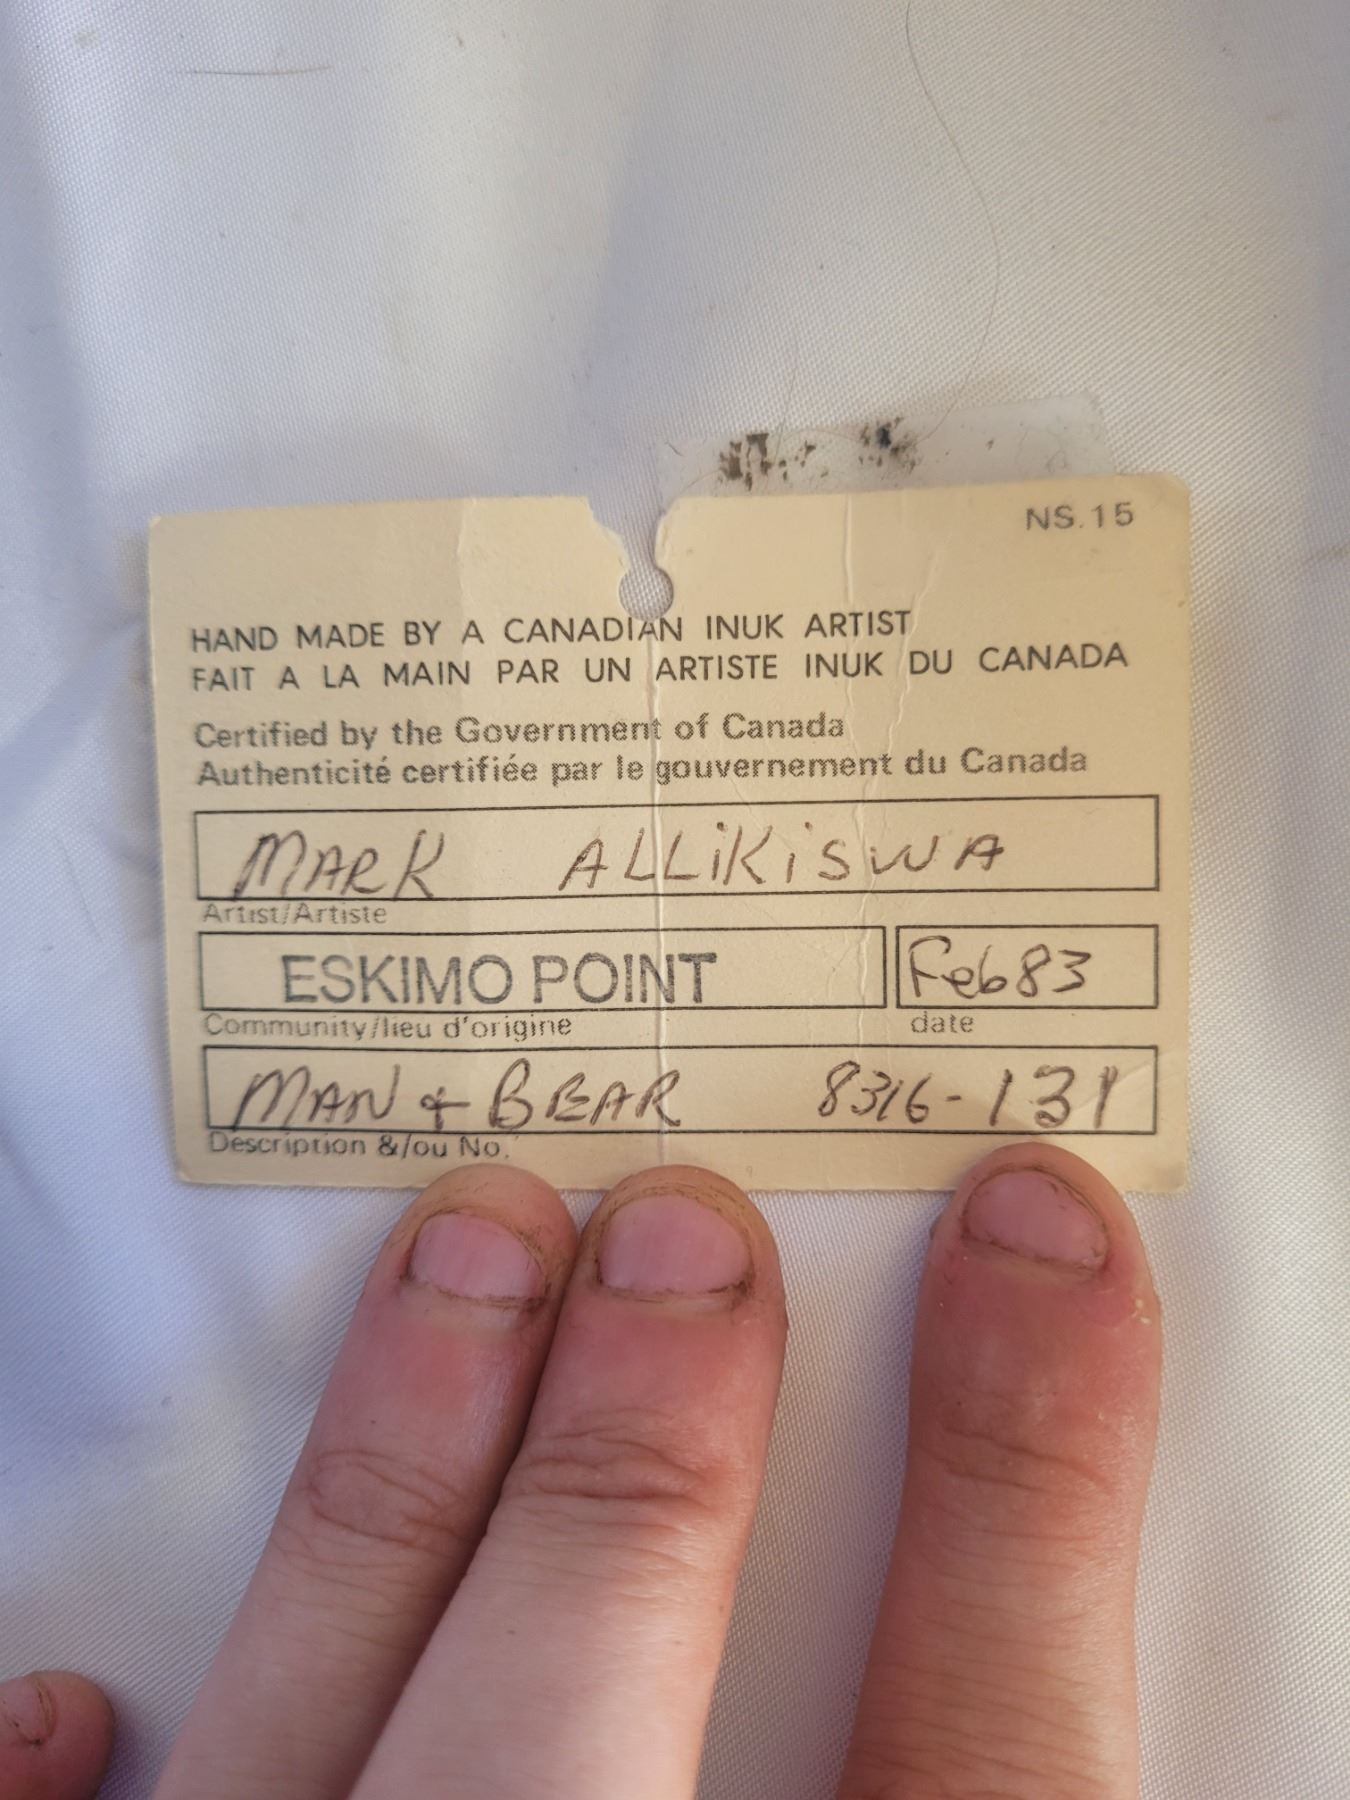 NS.15
HAND MADE BY A CANADIAN INUK ARTIST
FAIT A LA MAIN PAR UN ARTISTE INUK DU CANADA
Certified by the Government of Canada
Authenticité certifiée par le gouvernement du Canada
MARK ALLiKiSWA
Artist/Artiste
ESKIMO POINT Feb 83
Community/lieu d'origine date
MAN + BEAR 8316-131
Description &/ou No.